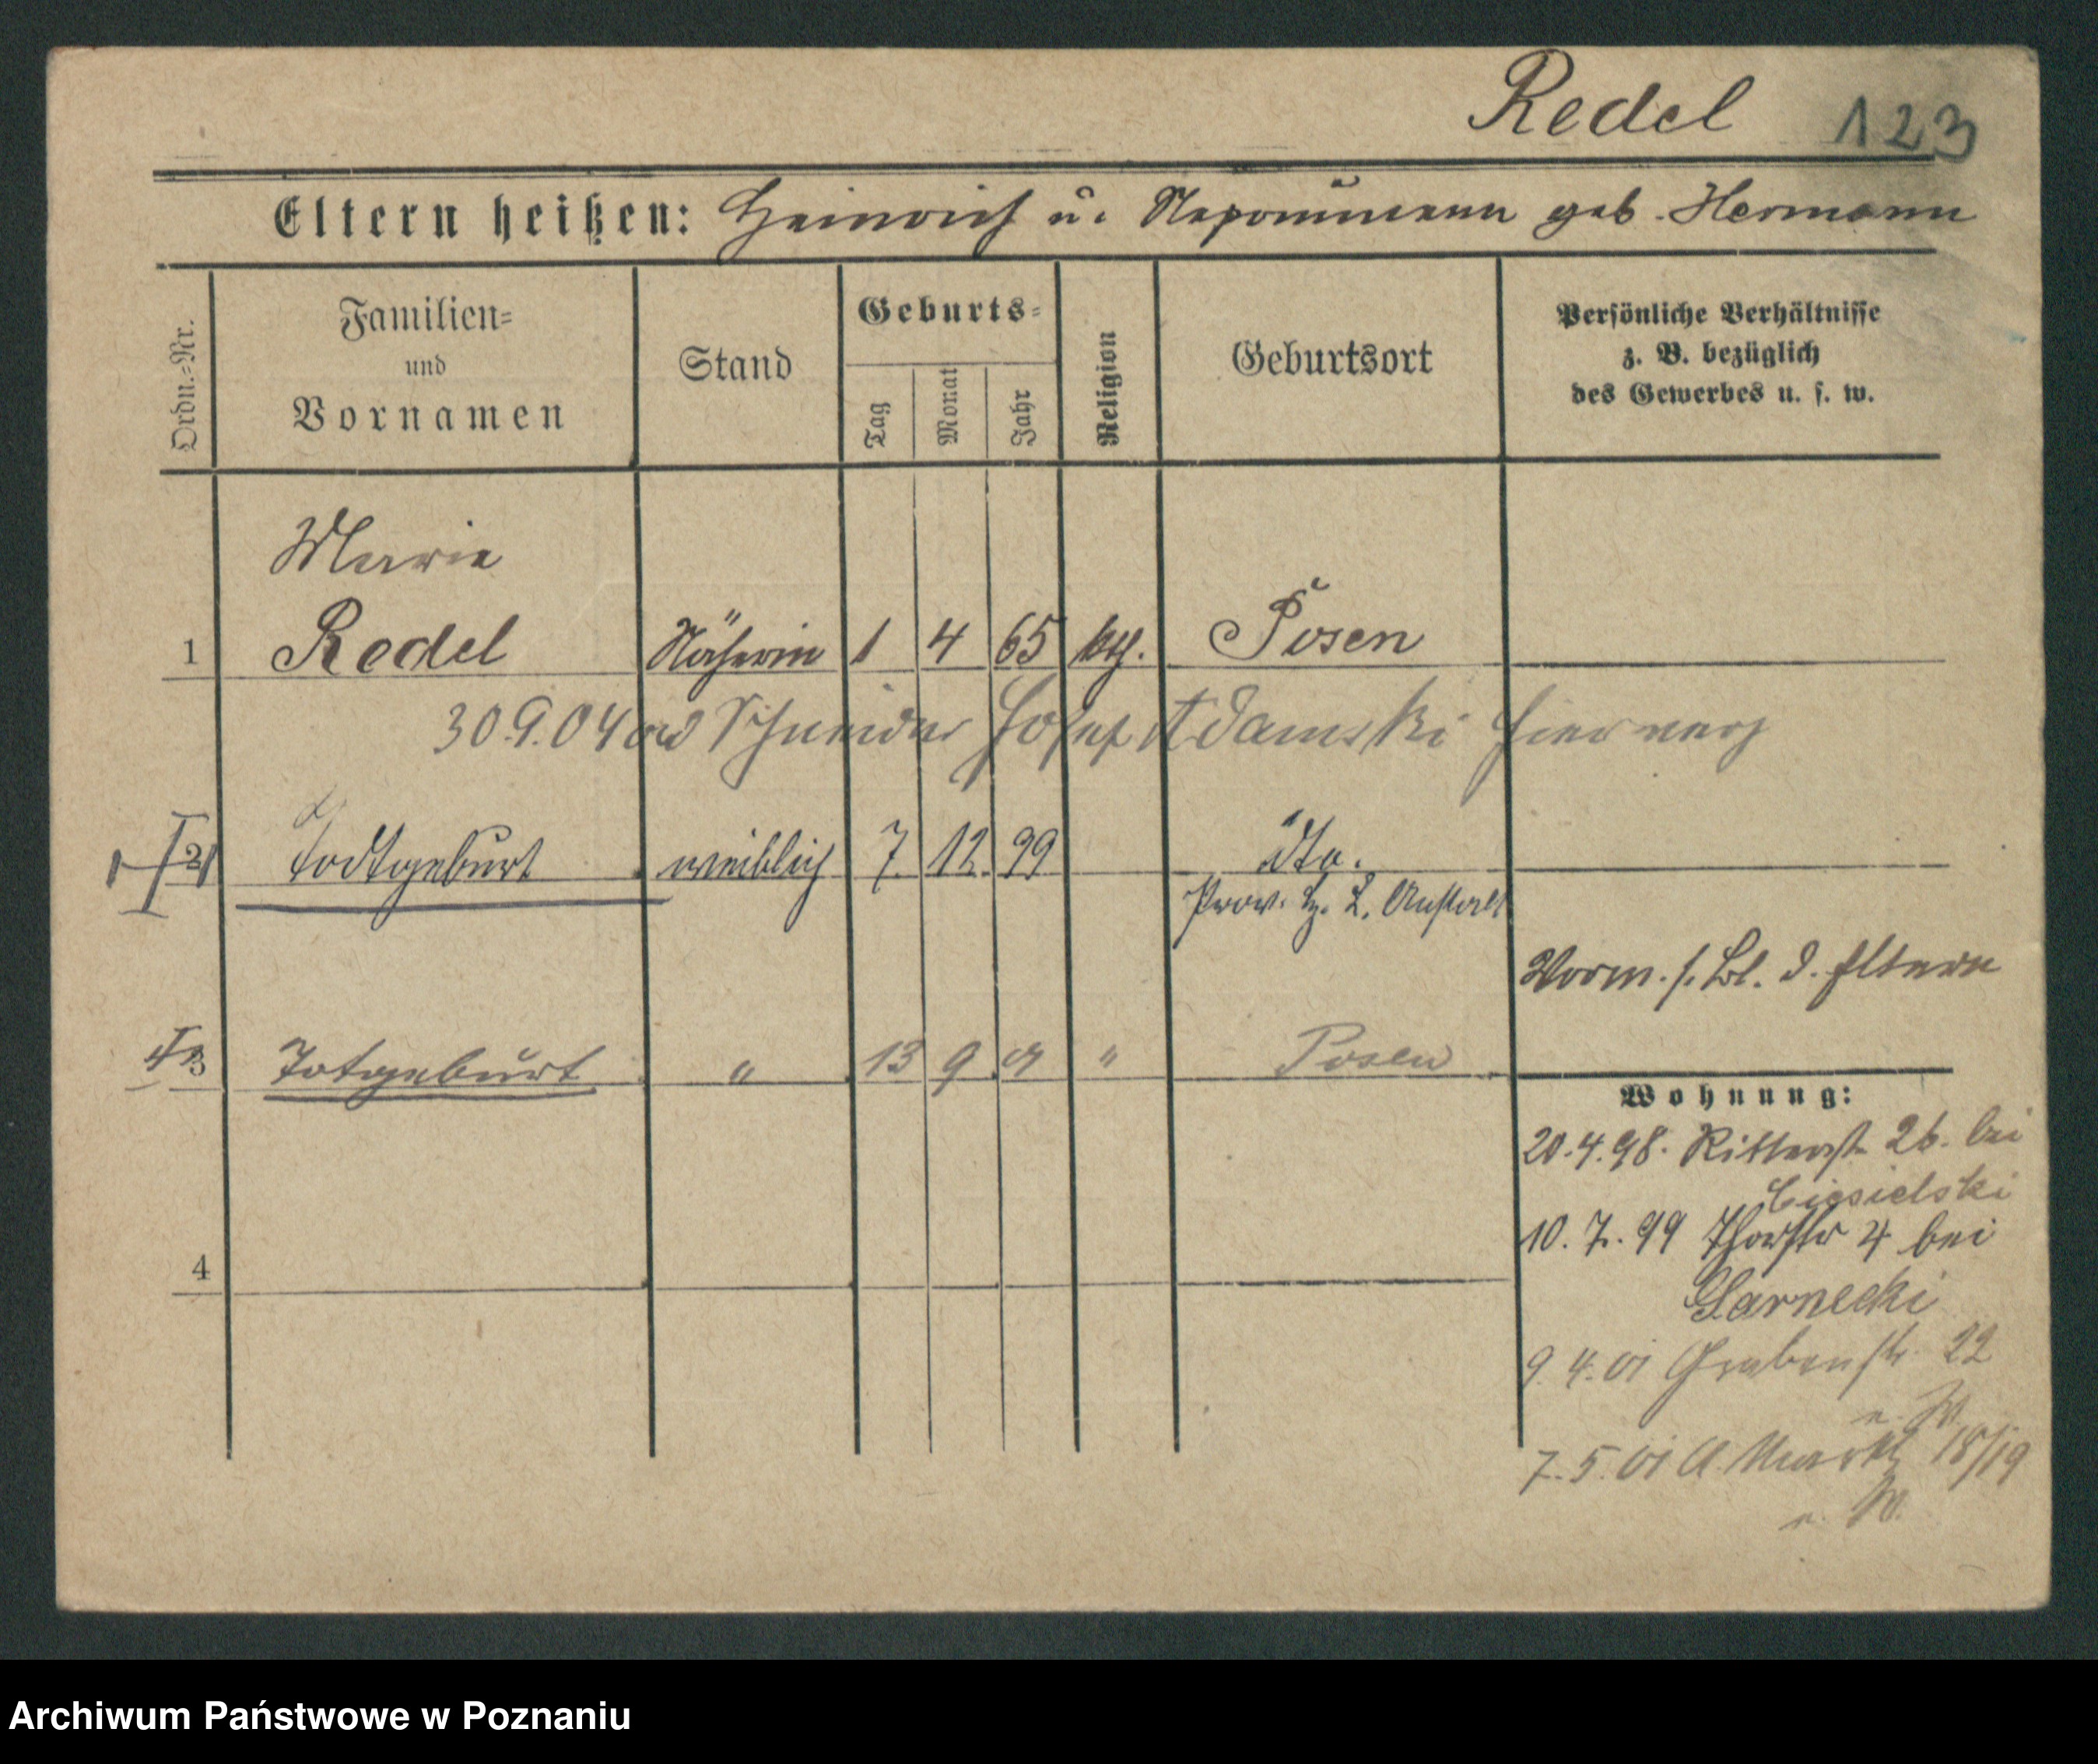 Redel 123
Eltern heißen: Heinrich u. Nepomucena geb. Hermann
Ordn.=Nr.
Familien=
und
Vornamen
Stand
Geburts=
Tag
Monat
Jahr
Religion
Geburtsort
Persönliche Verhältnisse
z. B. bezüglich
des Gewerbes u. s. w.
Marie
1 Redel Näherin 1 4 65 kth. Posen
30.9.04 Schneider Josef Adamski hier verh
2 Todtgeburt weiblich 7. 12. 99 dto.
Prov. H. L. Anstalt
Vorm. s. Bl. d. Eltern
3 Totgeburt " 13 9 " Posen
Wohnung:
20.4.98. Ritterst. 26. bei
Ciesielski
10. 7. 99 Thorstr 4 bei
4
Garnecki
9. 4. 01 Grabenstr. 22
7. 5. 01 A. Markt 18/19